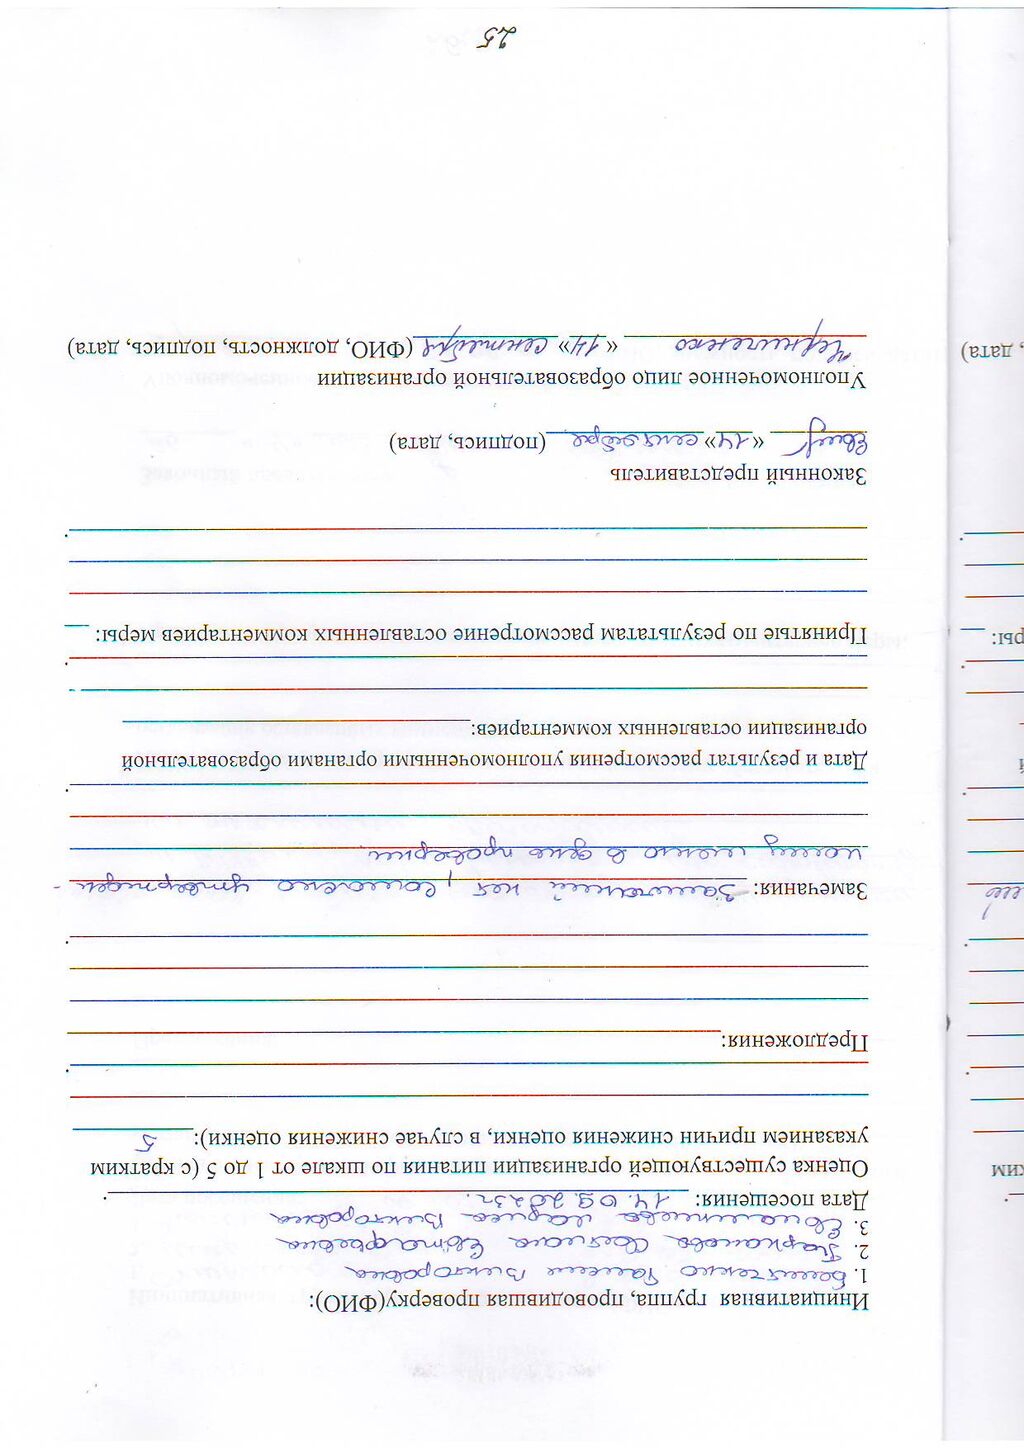 Инициативная группа, проводившая проверку(ФИО):
1. Викторовна
2.
3. Викторовна
Дата посещения: 14.09.2023г.
Оценка существующей организации питания по шкале от 1 до 5 (с кратким
указанием причин снижения оценки, в случае снижения оценки): 5
Предложения:
Замечания: нет,
меню в день проверки.
Дата и результат рассмотрения уполномоченными органами образовательной
организации оставленных комментариев:
Принятые по результатам рассмотрение оставленных комментариев меры:
Законный представитель
«14» сентября (подпись, дата)
Уполномоченное лицо образовательной организации
«14» сентября (ФИО, должность, подпись, дата)
25
ким
й
ры:
, дата)